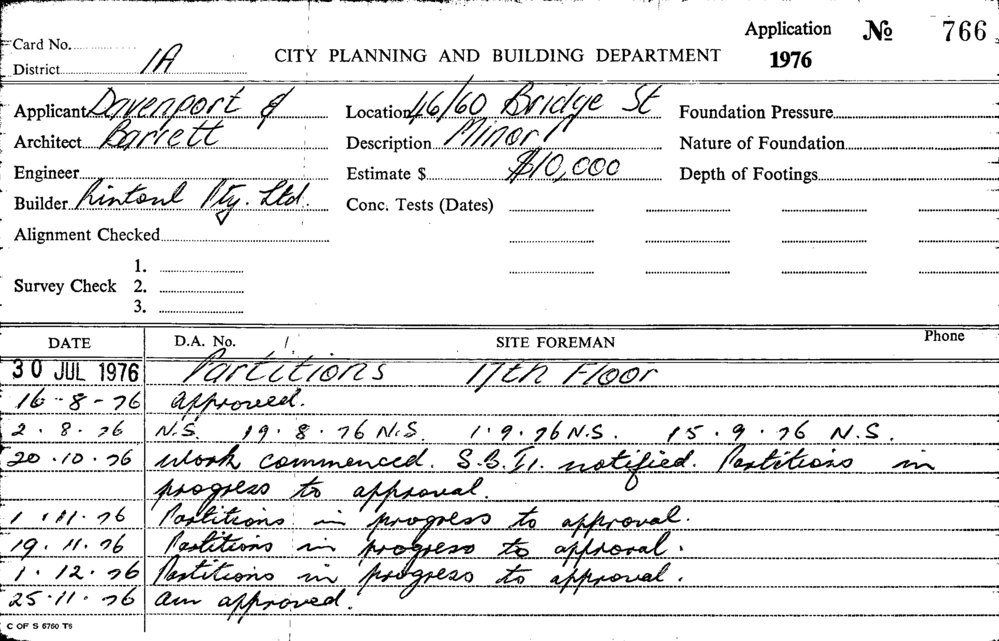 Application No 766
Card No.
1976
District 1A
CITY PLANNING AND BUILDING DEPARTMENT
Applicant Davenport & Location 46/60 Bridge St Foundation Pressure
Architect Barrett Description Minor Nature of Foundation
Engineer Estimate $ $10,000 Depth of Footings
Builder Rintoul Pty. Ltd. Conc. Tests (Dates)
Alignment Checked
1.
Survey Check 2.
3.
DATE D.A. No. SITE FOREMAN Phone
30 JUL 1976 Partitions 17th Floor
16-8-76 Approved.
2.8.76 N.S. 19.8.76 N.S. 1.9.76 N.S. 15.9.76 N.S.
20.10.76 Work commenced. notified. Partitions in
progress to approval.
1.11.76 Partitions in progress to approval.
19.11.76 Partitions in progress to approval.
1.12.76 Partitions in progress to approval.
25.11.76 am approved.
C OF S 5760 T5